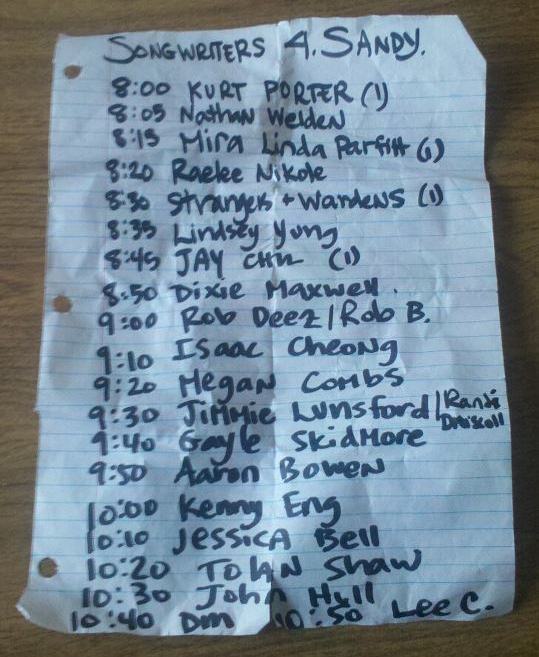 SONGWRITERS 4. SANDY.
8:00 KURT PORTER (1)
8:05 Nathan Welden
8:15 Mira Linda Parfitt (1)
8:20 Raelee Nikole
8:30 Strangers + WardeNS (1)
8:35 Lindsey Yung
8:45 JAY (1)
8:50 Dixie Maxwell.
9:00 Rob Deez/Rob B.
9:10 Isaac Cheong
9:20 Megan Combs
9:30 Jimmie Lunsford/Randi Driscoll
9:40 Gayle Skidmore
9:50 Aaron Bowen
10:00 Kenny Eng
10:10 Jessica Bell
10:20 TOLAN Shaw
10:30 John Hull
10:40 Dm 10:50 Lee C.